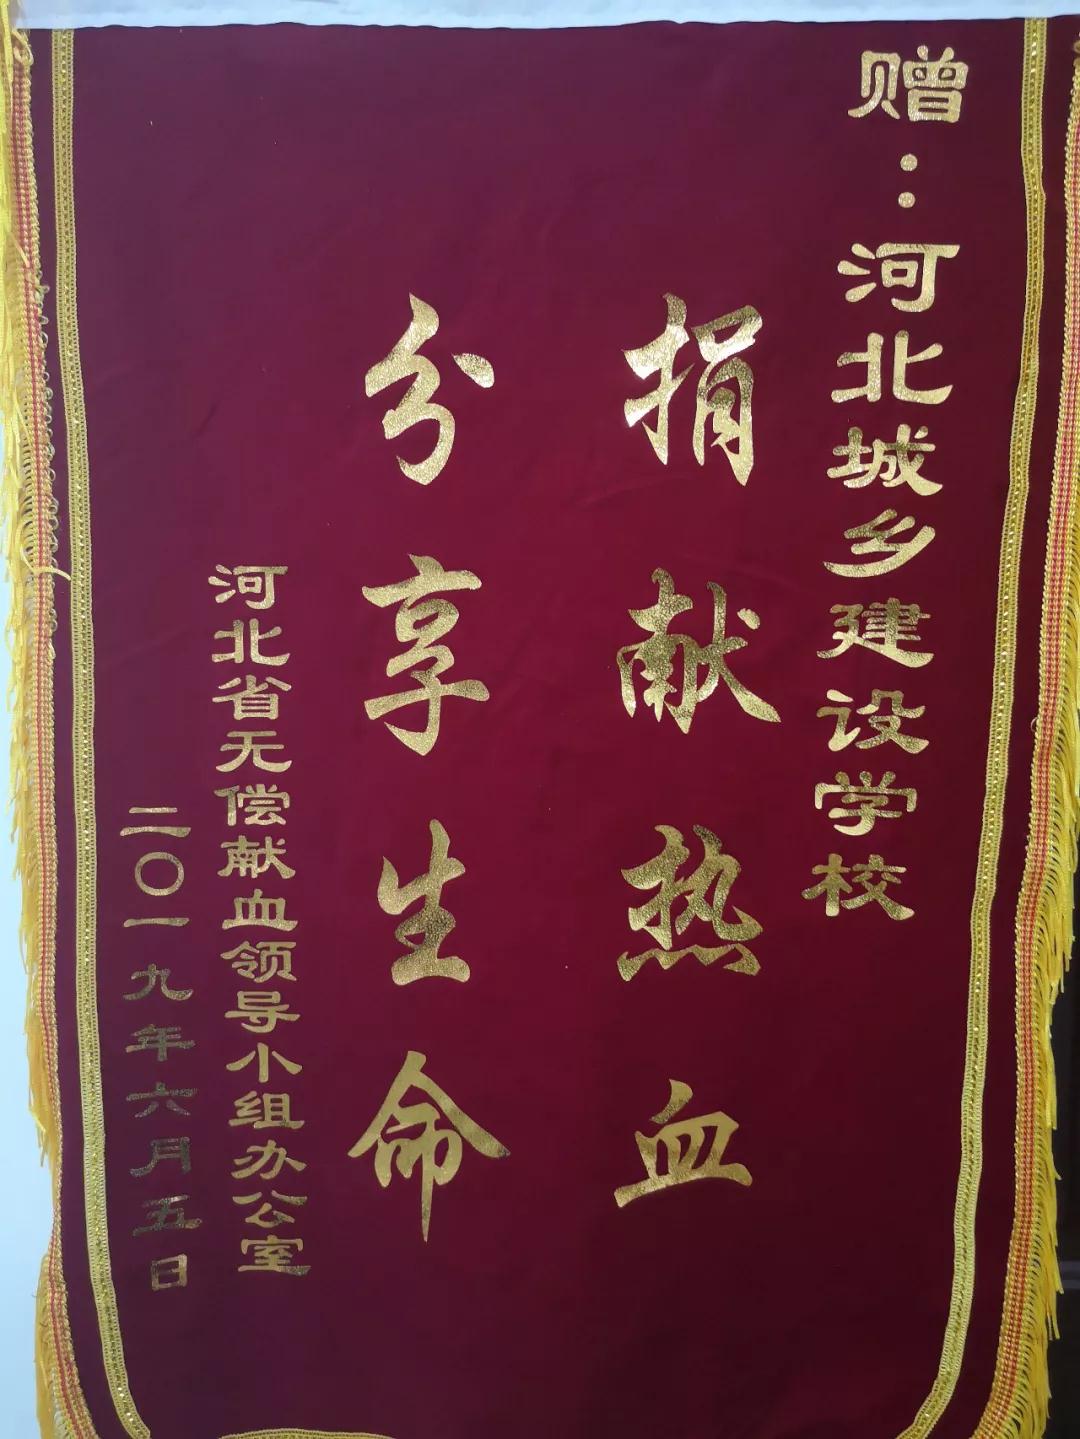 赠：河北城乡建设学校
捐献热血
分享生命
河北省无偿献血领导小组办公室
二〇一九年六月五日